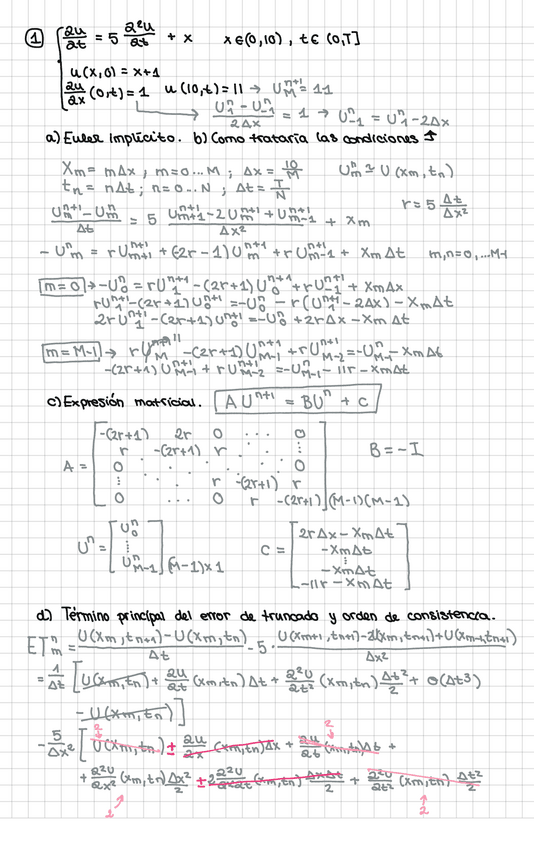 ① ∂u/∂t = 5 ∂²u/∂t + x   x∈(0,10), t∈(0,T]
u(x,0) = x+1
∂u/∂x (0,t) = 1   u(10,t) = 11 → U_M^{n+1} = 11
(U_1^n - U_{-1}^n)/(2Δx) = 1 → U_{-1}^n = U_1^n - 2Δx
a) Euler implícito. b) Como trataría las condiciones ↑
X_m = mΔx, m=0...M; Δx = 10/M   U_m^n ≃ U(x_m,t_n)
t_n = nΔt; n=0...N; Δt = T/N   r = 5 Δt/Δx²
(U_m^{n+1} - U_m^n)/Δt = 5 (U_{m+1}^{n+1} - 2U_m^{n+1} + U_{m-1}^{n+1})/Δx² + x_m
- U_m^n = rU_{m+1}^{n+1} + (-2r-1)U_m^{n+1} + rU_{m-1}^{n+1} + x_mΔt   m,n=0,...M-1
m=0 → -U_0^n = rU_1^{n+1} - (2r+1)U_0^{n+1} + rU_{-1}^{n+1} + x_mΔx
rU_1^{n+1} - (2r+1)U_0^{n+1} = -U_0^n - r(U_1^{n+1} - 2Δx) - x_mΔt
2rU_1^{n+1} - (2r+1)U_0^{n+1} = -U_0^n + 2rΔx - x_mΔt
m=M-1 → rU_M^{n+1} 11 - (2r+1)U_{M-1}^{n+1} + rU_{M-2}^{n+1} = -U_{M-1}^n - x_mΔt
-(2r+1)U_{M-1}^{n+1} + rU_{M-2}^{n+1} = -U_{M-1}^n - 11r - x_mΔt
c) Expresión matricial. AU^{n+1} = BU^n + C
-(2r+1) 2r 0 ... 0
r -(2r+1) r ⋮
A = 0 ⋱ ⋱ ⋱ 0   B = -I
⋮ r -(2r+1) r
0 ... 0 r -(2r+1) (M-1)(M-1)
U^n = [U_0^n ⋮ U_{M-1}^n] (M-1)x1   C = [2rΔx - x_mΔt
-x_mΔt
⋮
-x_mΔt
-11r - x_mΔt]
d) Término principal del error de truncado y orden de consistencia.
ET_m^n = (U(x_m,t_{n+1}) - U(x_m,t_n))/Δt - 5 · (U(x_{m+1},t_{n+1}) - 2U(x_m,t_{n+1}) + U(x_{m-1},t_{n+1}))/Δx²
= 1/Δt [U(x_m,t_n) + ∂u/∂t (x_m,t_n)Δt + ∂²u/∂t² (x_m,t_n) Δt²/2 + O(Δt³)
- U(x_m,t_n)]
- 5/Δx² [2 U(x_m,t_n) ± ∂u/∂x (x_m,t_n)Δx + 2 ∂u/∂t (x_m,t_n)Δt +
+ ∂²u/∂x² (x_m,t_n) Δx²/2 ± 2 ∂²u/∂x∂t (x_m,t_n) ΔxΔt/2 + ∂²u/∂t² (x_m,t_n) Δt²/2
2 2